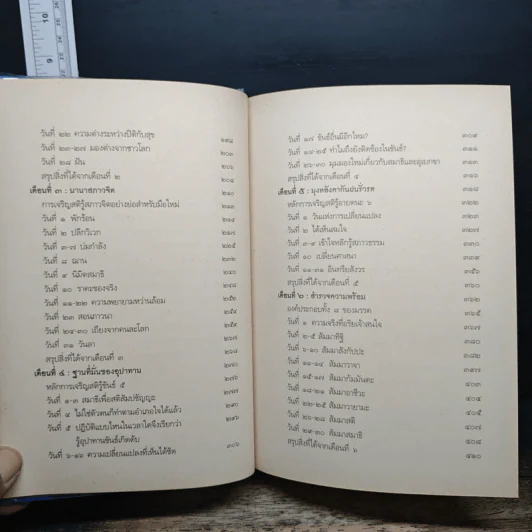 10
9
วันที่ ๒๒ ความต่างระหว่างปีติกับสุข ๑๙๘
วันที่ ๒๓-๒๗ มองต่างจากชาวโลก ๒๐๓
วันที่ ๒๘ ฝัน ๒๐๕
สรุปสิ่งที่ได้จากเดือนที่ ๒ ๒๑๐
เดือนที่ ๓ : นานาสภาวจิต
การเจริญสติรู้สภาวจิตอย่างย่อสำหรับมือใหม่
วันที่ ๑ พักร้อน ๒๑๔
วันที่ ๒ ปลีกวิเวก ๒๑๗
วันที่ ๓-๗ บ่มกำลัง ๒๒๕
วันที่ ๘ ฌาน ๒๓๒
วันที่ ๙ นิมิตสมาธิ
วันที่ ๑๐ ราคะของจริง
วันที่ ๑๑-๒๒ ความพยายามหว่านล้อม
วันที่ ๒๓ สอนภาวนา
วันที่ ๒๔-๓๐ เถียงจากคนละโลก
วันที่ ๓๑ วันลา
สรุปสิ่งที่ได้จากเดือนที่ ๓
เดือนที่ ๔ : ฐานที่มั่นของอุปาทาน
หลักการเจริญสติรู้ขันธ์ ๕ ๒๗๖
วันที่ ๑-๓ สมาธิเพื่อสติสัมปชัญญะ
วันที่ ๔ ไม่ใช่ตัวตนก็ทำตามอำเภอใจได้แล้ว ๒๙๐
วันที่ ๕ ปฏิบัติแบบไหนในเวลาใดจึงเรียกว่า
รู้อุปาทานขันธ์เกิดดับ
วันที่ ๖-๑๖ ความเปลี่ยนแปลงที่เห็นได้ชัด ๓๐๖
วันที่ ๑๗ ขันธ์อื่นมีอีกไหม? ๓๐๙
วันที่ ๑๘-๒๕ ทำไมถึงยังติดข้องในขันธ์? ๓๑๑
วันที่ ๒๖-๓๐ มุมมองใหม่เกี่ยวกับสมาธิและอุเบกขา ๓๑๓
สรุปสิ่งที่ได้จากเดือนที่ ๔ ๓๑๘
เดือนที่ ๕ :
หลักการเจริญสติรู้อายตนะ ๖ ๓๒๒
วันที่ ๑ วันแห่งการเปลี่ยนแปลง
วันที่ ๒ ได้เห็นสมใจ
วันที่ ๓-๙ เข้าใจหลักรู้สภาวธรรม ๓๓๐
วันที่ ๑๐ เปลี่ยนศาสนา ๓๓๙
วันที่ ๑๑-๓๑ อินทรียสังวร ๓๕๖
สรุปสิ่งที่ได้จากเดือนที่ ๕ ๓๖๐
เดือนที่ ๖ : สำรวจความพร้อม
องค์ประกอบทั้ง ๘ ของมรรค
วันที่ ๑ ความจริงที่อริยเจ้าสนใจ ๓๖๗
วันที่ ๒-๕ สัมมาทิฐิ
วันที่ ๖-๑๐ สัมมาสังกัปปะ ๓๘๒
วันที่ ๑๔ สัมมาวาจา
วันที่ ๑๕-๑๗ สัมมากัมมันตะ
วันที่ สัมมาอาชีวะ
วันที่ สัมมาวายามะ
วันที่ ๒๖-๒๘ สัมมาสติ ๔๐๕
วันที่ ๒๙-๓๐ สัมมาสมาธิ ๔๐๗
สรุปสิ่งที่ได้จากเดือนที่ ๖ ๔๐๘
๔๑๐